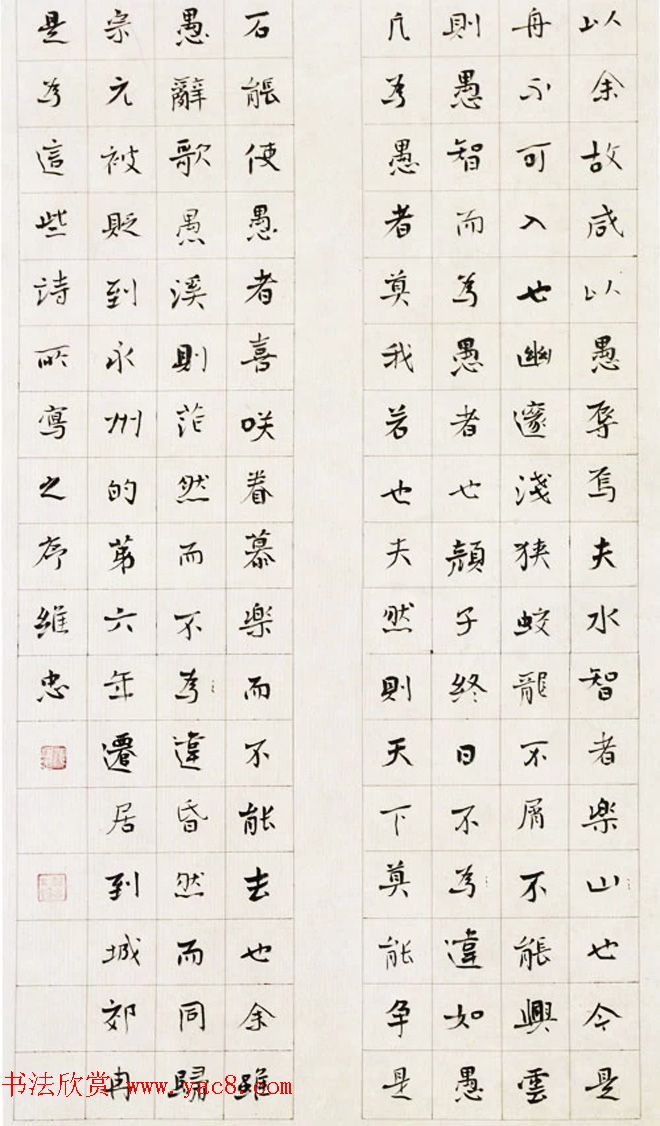 以余故咸以愚辱焉夫水智者樂山也今是
舟不可入也幽邃淺狹蛟龍不屑不能興雲
則愚智而為愚者也顏子終日不為違如愚
凡為愚者莫我若也夫然則天下莫能爭是
石能使愚者喜咲眷慕樂而不能去也余雖
愚辭歌愚溪則茫然而不為違昏然而同歸
宗元被貶到永州的第六年遷居到城郊冉
是為這些詩所寫之序維忠
书法欣赏 www.yac8.com